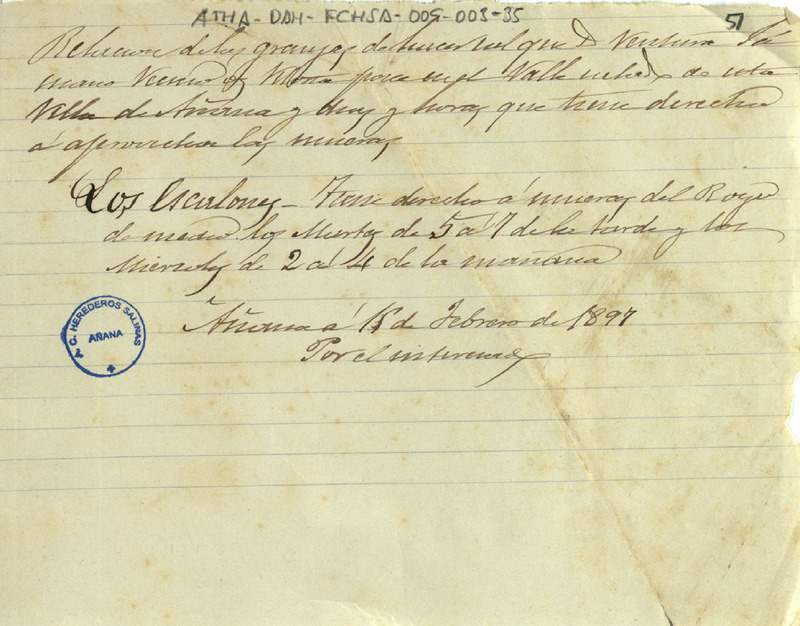 ATHA-DAH-FCHSA-005-003-35
51
Relacion de las granjas de hacer sal que D Ventura Sá
mano Vecino de Vitoria posee en el Valle salado de esta
Villa de Añana y dias y horas que tiene derecho
á aprovechar las mueras
Los Escalones - Tiene derecho á mueras del Royo
de medio los Martes de 5 á 7 de la tarde y los
Miercoles de 2 á 4 de la mañana
Añana á 15 de Febrero de 1897
Por el interesado
C. HEREDEROS SALINAS
AÑANA